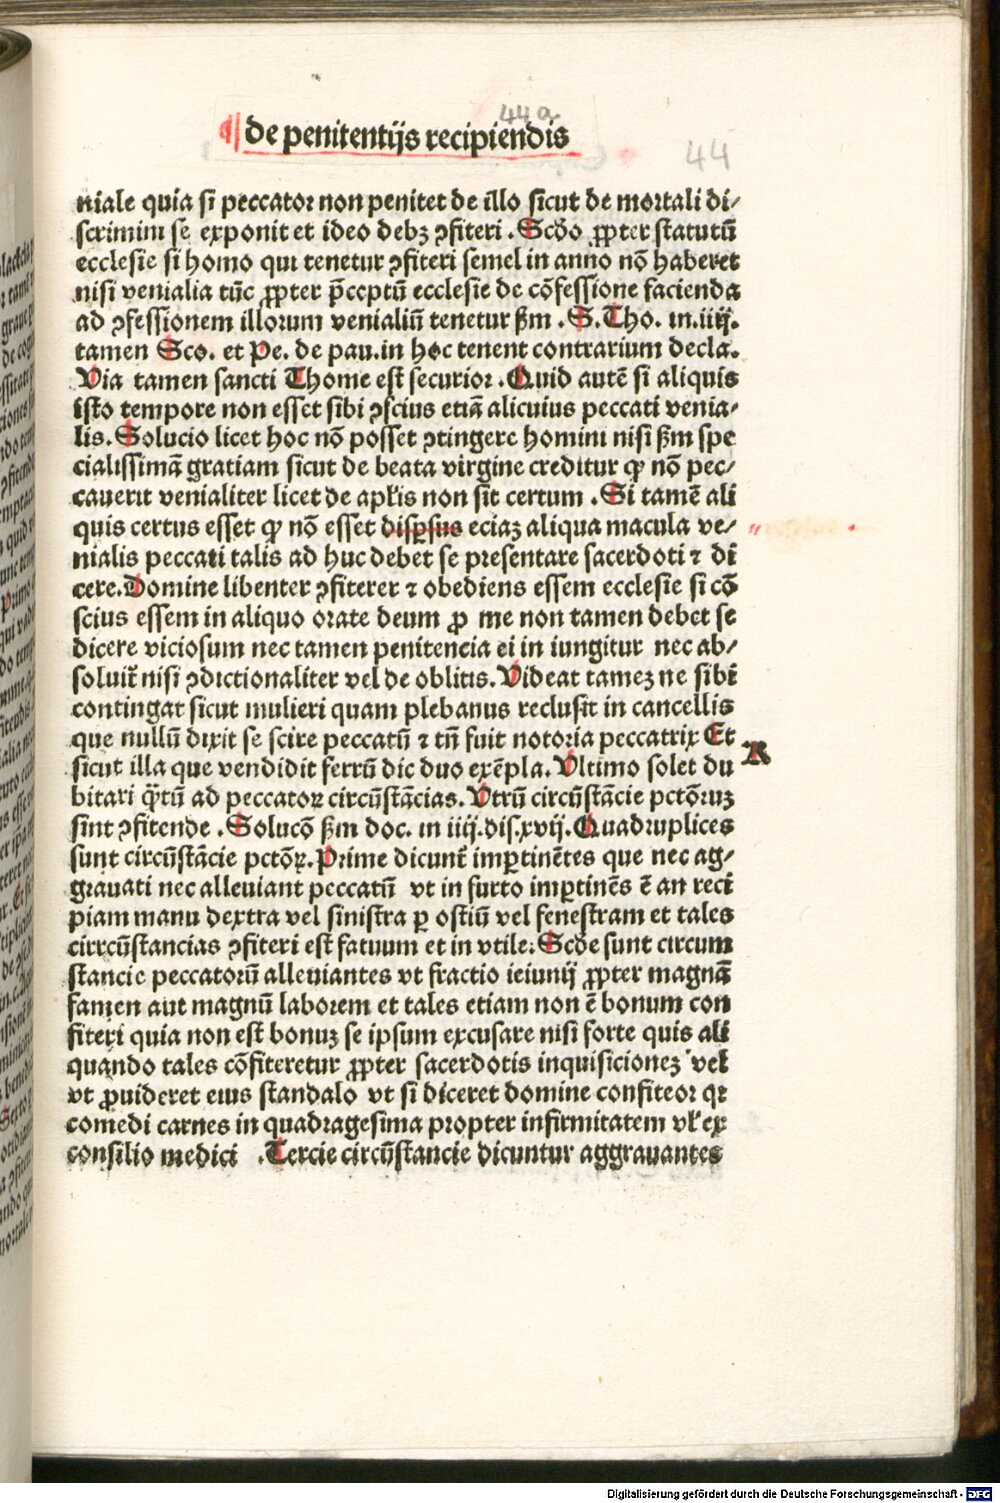 44a
de penitentijs recipiendis
44
niale quia si peccator non penitet de illo sicut de mortali di/
scrimini se exponit et ideo debꝫ ꝯfiteri . Scd̄o ꝓpter statutū
ecclesie si homo qui tenetur ꝯfiteri semel in anno nō haberet
nisi venialia tūc ꝓpter p̄ceptū ecclesie de cōfessione facienda
ad ꝯfessionem illorum venialiū tenetur ẜm . S. Tho. in.iiij.
tamen Sco. et Pe. de pau.in hoc tenent contrarium decla.
Via tamen sancti Thome est securior . Quid autē si aliquis
isto tempore non esset sibi ꝯscius etiā alicuius peccati venia/
lis. Solucio licet hoc nō posset ꝯtingere homini nisi ẜm spe
cialissimā gratiam sicut de beata virgine creditur ꝙ nō pec/
cauerit venialiter licet de apl̄is non sit certum . Si tamē ali
quis certus esset ꝙ nō esset disꝑsus eciaꝫ aliqua macula ve/
nialis peccati talis ad huc debet se presentare sacerdoti ⁊ di
cere. Domine libenter ꝯfiterer ⁊ obediens essem ecclesie si cō
scius essem in aliquo orate deum ꝓ me non tamen debet se
dicere viciosum nec tamen penitencia ei in iungitur nec ab/
soluit̄ nisi ꝯdictionaliter vel de oblitis. Videat tameꝫ ne sibi
contingat sicut mulieri quam plebanus reclusit in cancellis
que nullū dixit se scire peccatū ⁊ tn̄ fuit notoria peccatrix Et
R
sicut illa que vendidit ferrū dic duo exēpla. Vltimo solet du
bitari q̄tū ad peccatoꝝ circūstācias. Vtrū circūstācie pctōruꝫ
sint ꝯfitende . Solucō ẜm doc. in iiij.dis.xvij. Quadruplices
sunt circūstācie pctōꝝ. Prime dicunt̄ imꝑtinētes que nec ag/
grauati nec alleuiant peccatū vt in furto imꝑtinēs ē an reci
piam manu dextra vel sinistra ꝑ ostiū vel fenestram et tales
circcūstancias ꝯfiteri est fatuum et in vtile. Scd̄e sunt circum
stancie peccatorū alleuiantes vt fractio ieiunij ꝓpter magnā
famen aut magnū laborem et tales etiam non ē bonum con
fiteri quia non est bonuꝫ se ipsum excusare nisi forte quis ali
quando tales cōfiteretur ꝓpter sacerdotis inquisicioneꝫ vel
vt ꝓuideret eius standalo vt si diceret domine confiteor qꝛ
comedi carnes in quadragesima propter infirmitatem vl̄ ex
consilio medici . Tercie circūstancie dicuntur aggrauantes
Digitalisierung gefördert durch die Deutsche Forschungsgemeinschaft - DFG